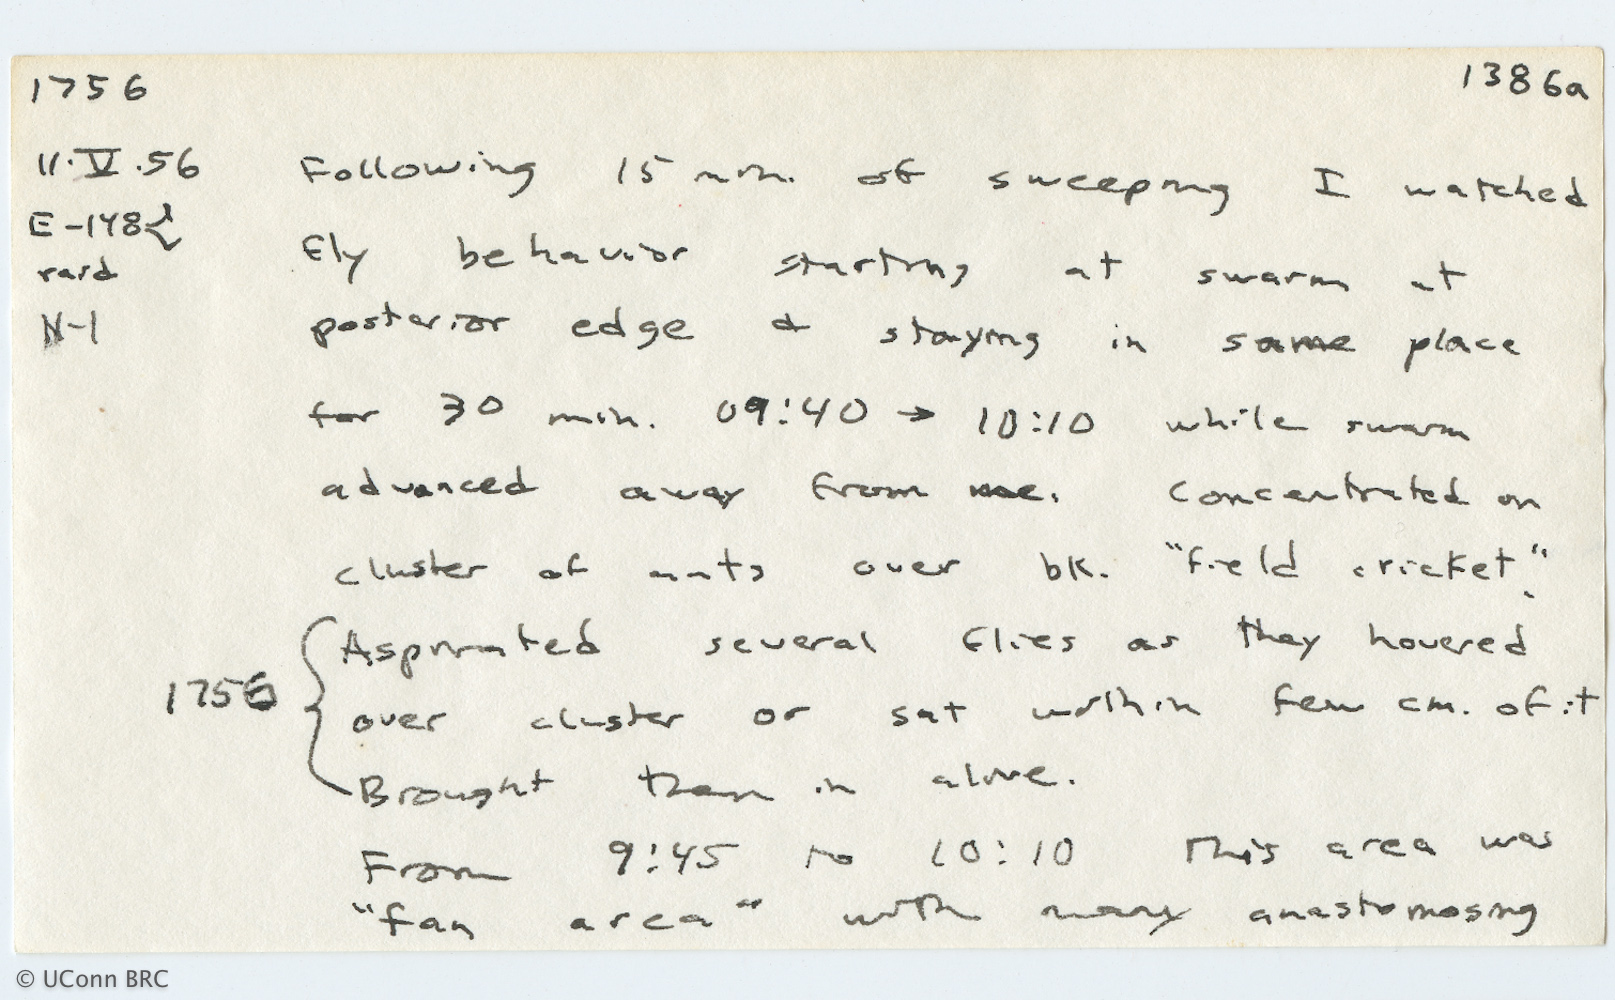 1756
1386a
11.V.56
Following 15 min. of sweeping I watched
E-148
raid
fly behavior starting at swarm at
N-1
posterior edge & staying in same place
for 30 min. 09:40 → 10:10 while swarm
advanced away from me. Concentrated on
cluster of ants over bk. "field cricket".
Aspirated several flies as they hovered
1756
over cluster or sat within few cm. of it
Brought them in alive.
From 9:45 to 10:10 this area was
"fan area" with many anastomosing
© UConn BRC